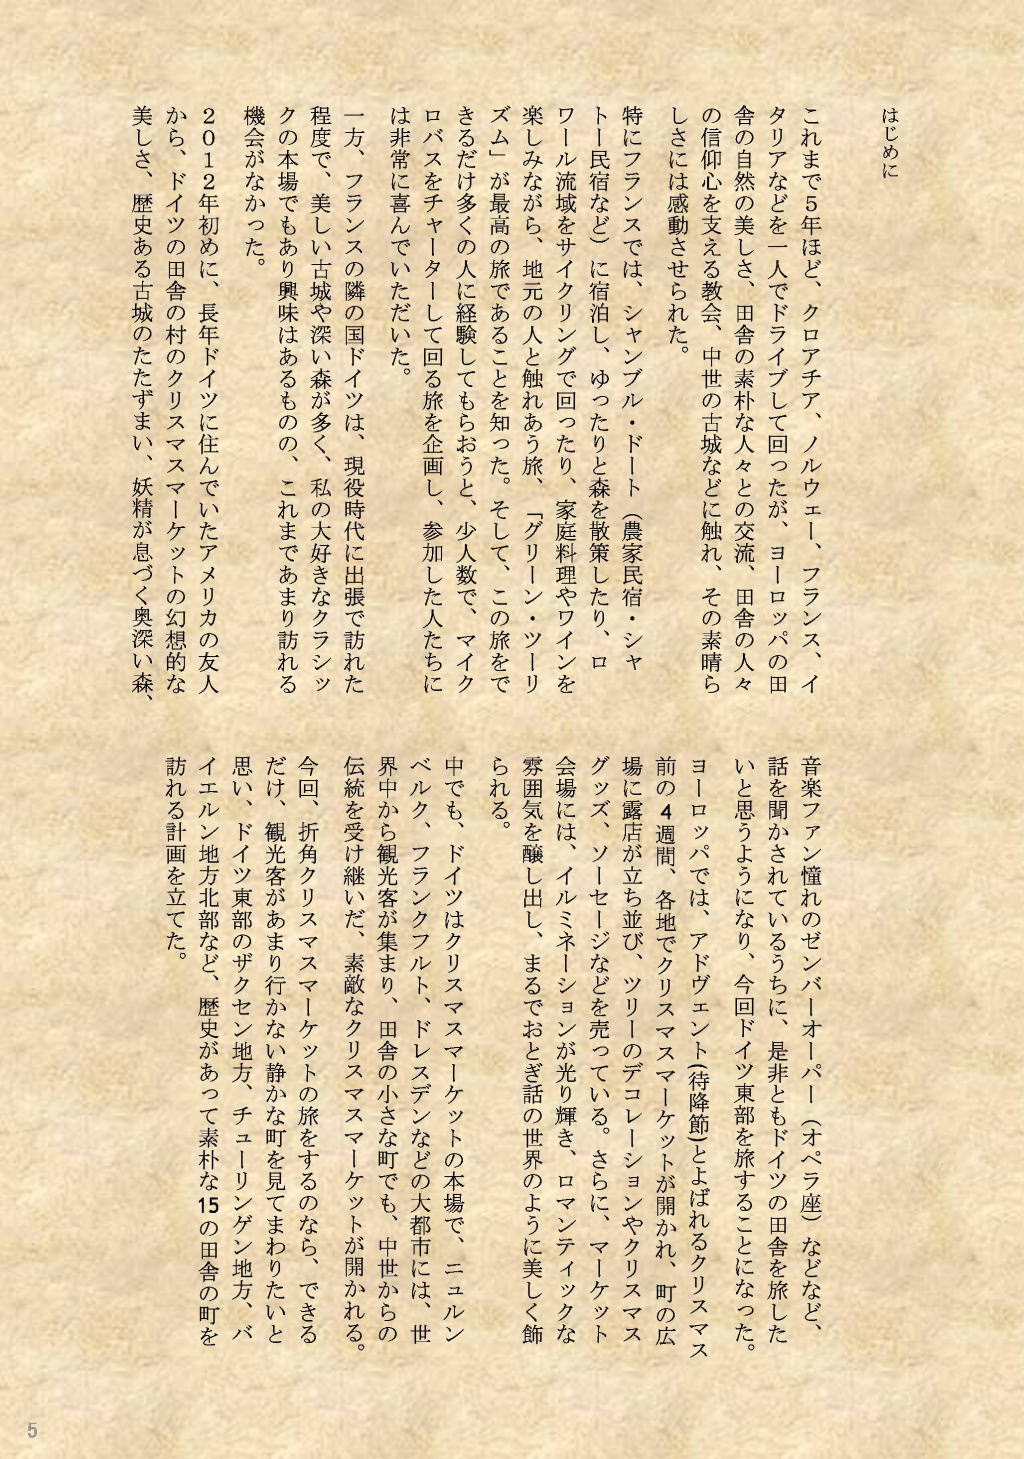 はじめに
これまで５年ほど、クロアチア、ノルウェー、フランス、イ
タリアなどを一人でドライブして回ったが、ヨーロッパの田
舎の自然の美しさ、田舎の素朴な人々との交流、田舎の人々
の信仰心を支える教会、中世の古城などに触れ、その素晴ら
しさには感動させられた。
特にフランスでは、シャンブル・ドート（農家民宿・シャ
トー民宿など）に宿泊し、ゆったりと森を散策したり、ロ
ワール流域をサイクリングで回ったり、家庭料理やワインを
楽しみながら、地元の人と触れあう旅、「グリーン・ツーリ
ズム」が最高の旅であることを知った。そして、この旅をで
きるだけ多くの人に経験してもらおうと、少人数で、マイク
ロバスをチャーターして回る旅を企画し、参加した人たちに
は非常に喜んでいただいた。
一方、フランスの隣の国ドイツは、現役時代に出張で訪れた
程度で、美しい古城や深い森が多く、私の大好きなクラシッ
クの本場でもあり興味はあるものの、これまであまり訪れる
機会がなかった。
２０１２年初めに、長年ドイツに住んでいたアメリカの友人
から、ドイツの田舎の村のクリスマスマーケットの幻想的な
美しさ、歴史ある古城のたたずまい、妖精が息づく奥深い森、
音楽ファン憧れのゼンバーオーパー（オペラ座）などなど、
話を聞かされているうちに、是非ともドイツの田舎を旅した
いと思うようになり、今回ドイツ東部を旅することになった。
ヨーロッパでは、アドヴェント(待降節)とよばれるクリスマス
前の4週間、各地でクリスマスマーケットが開かれ、町の広
場に露店が立ち並び、ツリーのデコレーションやクリスマス
グッズ、ソーセージなどを売っている。さらに、マーケット
会場には、イルミネーションが光り輝き、ロマンティックな
雰囲気を醸し出し、まるでおとぎ話の世界のように美しく飾
られる。
中でも、ドイツはクリスマスマーケットの本場で、ニュルン
ベルク、フランクフルト、ドレスデンなどの大都市には、世
界中から観光客が集まり、田舎の小さな町でも、中世からの
伝統を受け継いだ、素敵なクリスマスマーケットが開かれる。
今回、折角クリスマスマーケットの旅をするのなら、できる
だけ、観光客があまり行かない静かな町を見てまわりたいと
思い、ドイツ東部のザクセン地方、チューリンゲン地方、バ
イエルン地方北部など、歴史があって素朴な15の田舎の町を
訪れる計画を立てた。
5